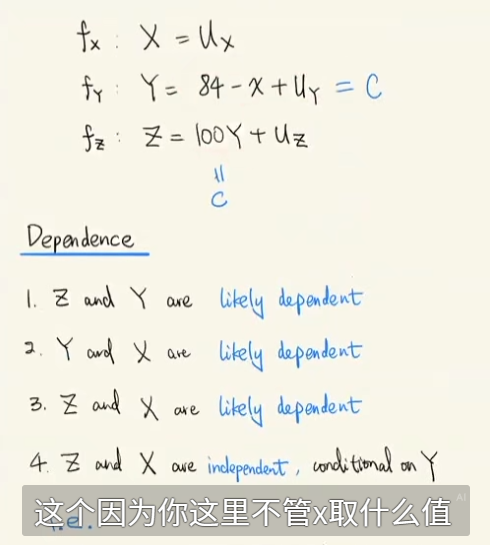 fx : X = Ux
fY : Y = 84 - x + UY = C
fz : Z = 100Y + Uz
||
C
Dependence
1. Z and Y are likely dependent
2. Y and X are likely dependent
3. Z and X are likely dependent
4. Z and X are independent, conditional on Y
i.e.
这个因为你这里不管x取什么值
AI